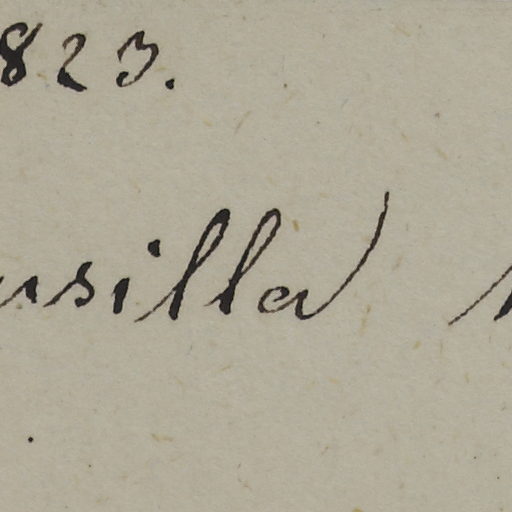 823.
usilla